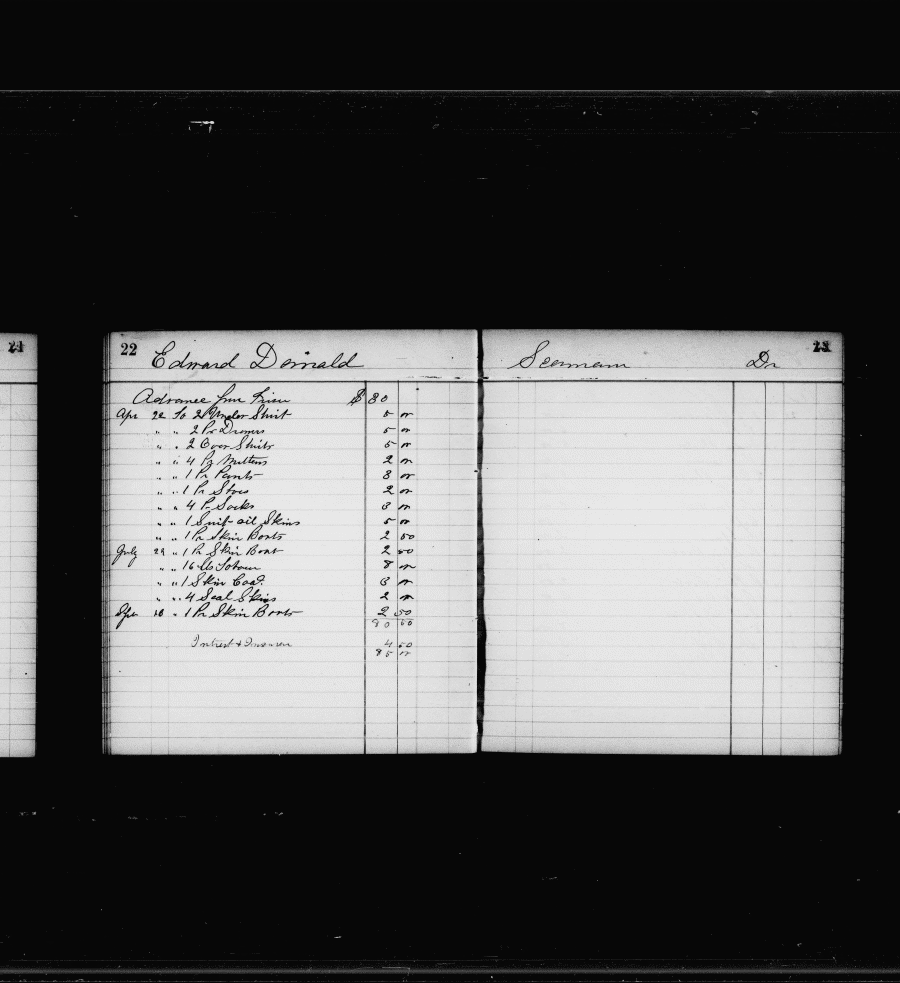 21
22
Edward Donnald
Seamann Dr
23
Advance $30
Apr 22 To 2 Under Shirt 5 00
" " 2 Pr Drawers 5 00
" " 2 Over Shirts 5 00
" " 4 Pr Mittens 2 00
" " 1 Pr Pants 3 00
" " 1 Pr Shoes 2 00
" " 4 Pr Socks 3 00
" " 1 Suit oil Skins 5 00
" " 1 Pr Skin Boots 2 50
July 29 " 1 Pr Skin Boot 2 50
" " 16 lbs 8 00
" " 1 Skin Coat 3 00
" " 4 Seal Skins 2 00
18 " 1 Pr Skin Boots 2 50
80 50
Intrest + 4 50
85 00